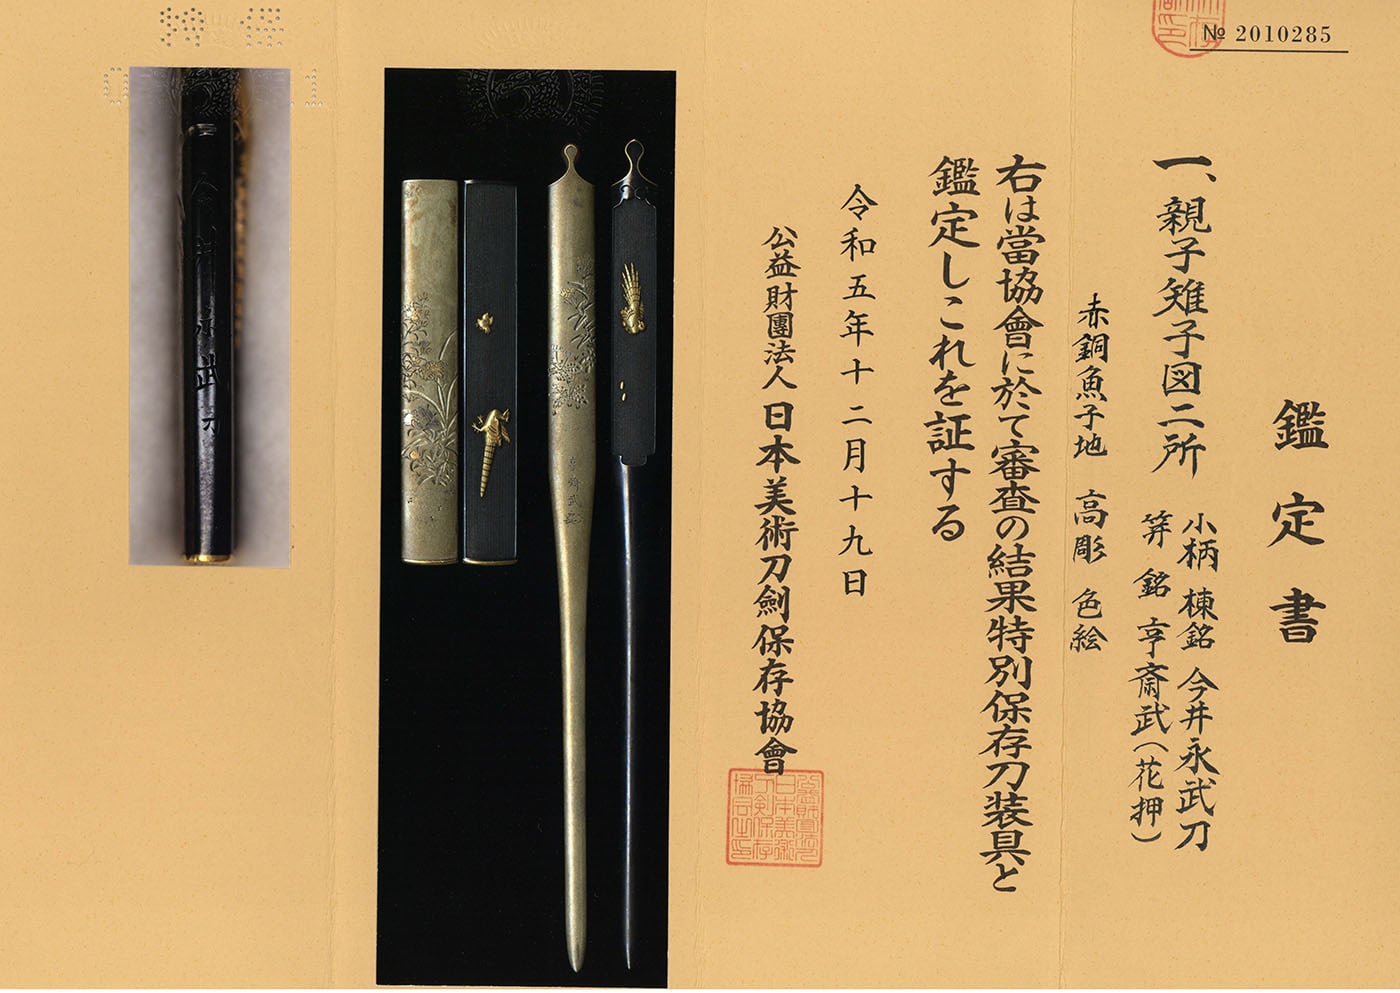 № 2010285
鑑定書
一、親子雉子図二所
小柄 棟銘 今井永武刀
笄 銘 亨斎武(花押)
赤銅魚子地 高彫 色絵
右は當協會に於て審査の結果特別保存刀装具と
鑑定しこれを証する
令和五年十二月十九日
公益財團法人 日本美術刀劍保存協會
今井永武刀